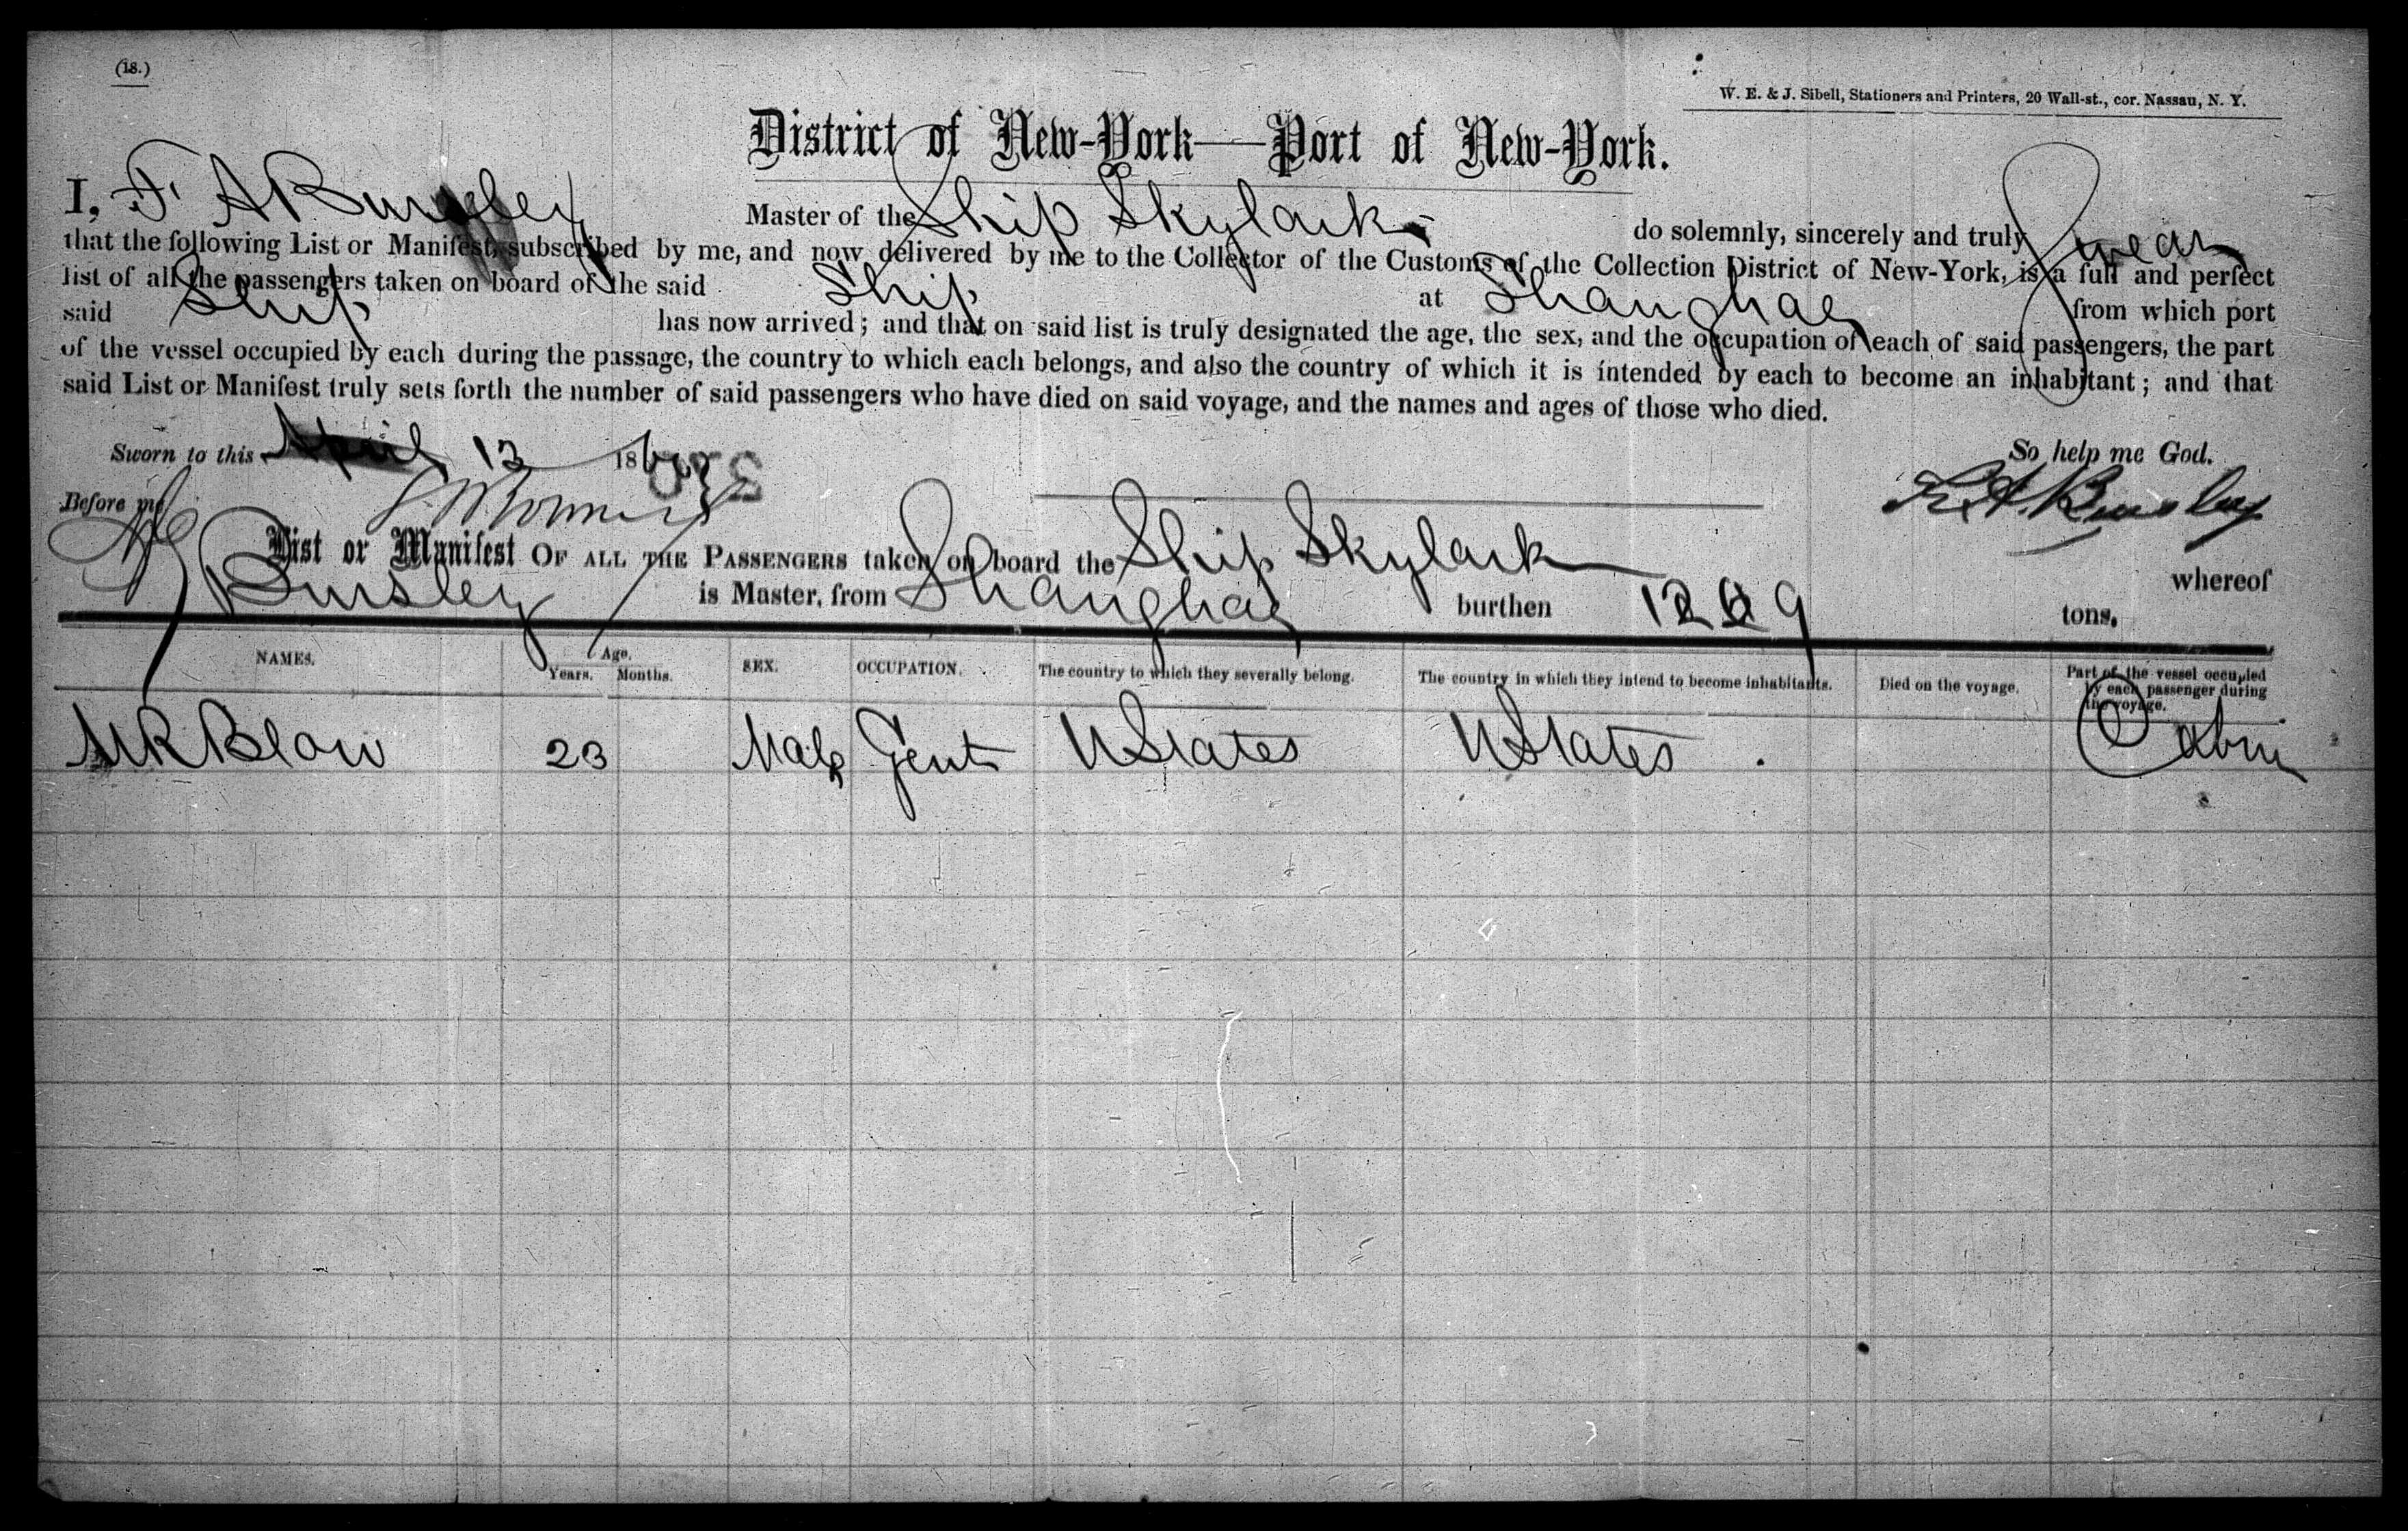 (18.)
W. E. & J. Sibell, Stationers and Printers, 20 Wall-st., cor. Nassau, N. Y.
District of New-York—Port of New-York.
I, F A Bursley Master of the Ship Skylark do solemnly, sincerely and truly Swear
that the following List or Manifest, subscribed by me, and now delivered by me to the Collector of the Customs of the Collection District of New-York, is a full and perfect
list of all the passengers taken on board of the said Ship at Shanghae from which port
said Ship has now arrived; and that on said list is truly designated the age, the sex, and the occupation of each of said passengers, the part
of the vessel occupied by each during the passage, the country to which each belongs, and also the country of which it is intended by each to become an inhabitant; and that
said List or Manifest truly sets forth the number of said passengers who have died on said voyage, and the names and ages of those who died.
Sworn to this April 13 186
So help me God.
Before me
F. A. Bursley
List or Manifest OF ALL THE PASSENGERS taken on board the Ship Skylark whereof
Bursley is Master, from Shanghae burthen 1209 tons.
NAMES. Age. Years. Months. SEX. OCCUPATION. The country to which they severally belong. The country in which they intend to become inhabitants. Died on the voyage. Part of the vessel occupied by each passenger during the voyage.
Blow 23 Male Gent U States U States Cabin